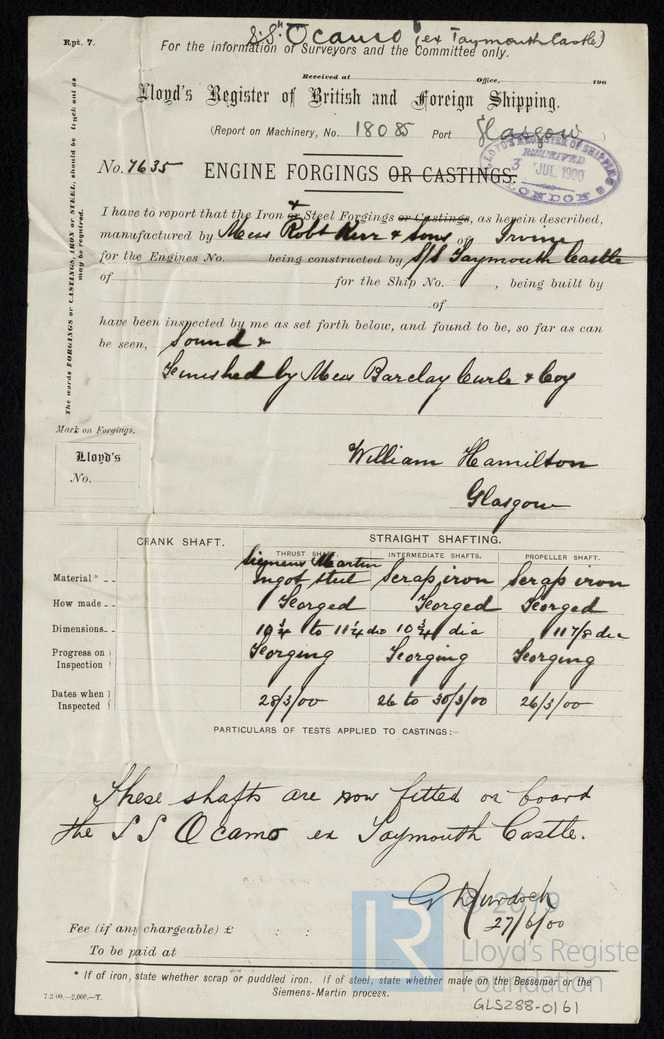 S.S. "Ocamo" (ex Taymouth Castle)
Rpt. 7.
For the information of Surveyors and the Committee only.
Received at Office, 190
Lloyd's Register of British and Foreign Shipping.
(Report on Machinery, No. 18085 Port Glasgow)
LLOYD'S REGISTER OF SHIPPING
RECEIVED
3 JUL 1900
LONDON
No. 7635 ENGINE FORGINGS OR CASTINGS.
The words FORGINGS or CASTINGS, IRON or STEEL, should be struck out as may be required.
I have to report that the Iron or Steel Forgings or Castings, as herein described,
&
manufactured by Mess Robt Kerr & Sons of Irvine
for the Engines No. being constructed by S/S Taymouth Castle
of for the Ship No. , being built by
of
have been inspected by me as set forth below, and found to be, so far as can
be seen, Sound &
Finished by Mess Barclay Curle & Coy
Mark on Forgings.
Lloyd's
No.
William Hamilton
Glasgow
CRANK SHAFT. STRAIGHT SHAFTING.
THRUST SHAFT. INTERMEDIATE SHAFTS. PROPELLER SHAFT.
Material* Siemens Martin Ingot steel Scrap iron Scrap iron
How made Forged Forged Forged
Dimensions 10 3/4 to 11 1/4 dia 10 3/4 dia 11 7/8 dia
Progress on Inspection Forging Forging Forging
Dates when Inspected 28/3/00 26 to 30/3/00 26/3/00
PARTICULARS OF TESTS APPLIED TO CASTINGS:—
These shafts are now fitted on board
the S S Ocamo ex Taymouth Castle.
G Murdoch
27/6/00
Fee (if any chargeable) £ : :
To be paid at
* If of iron, state whether scrap or puddled iron. If of steel, state whether made on the Bessemer or the
Siemens-Martin process.
7 2 00.—2,000.—T.
LR
© 2019
Lloyd's Register
Foundation
GLS288-0161